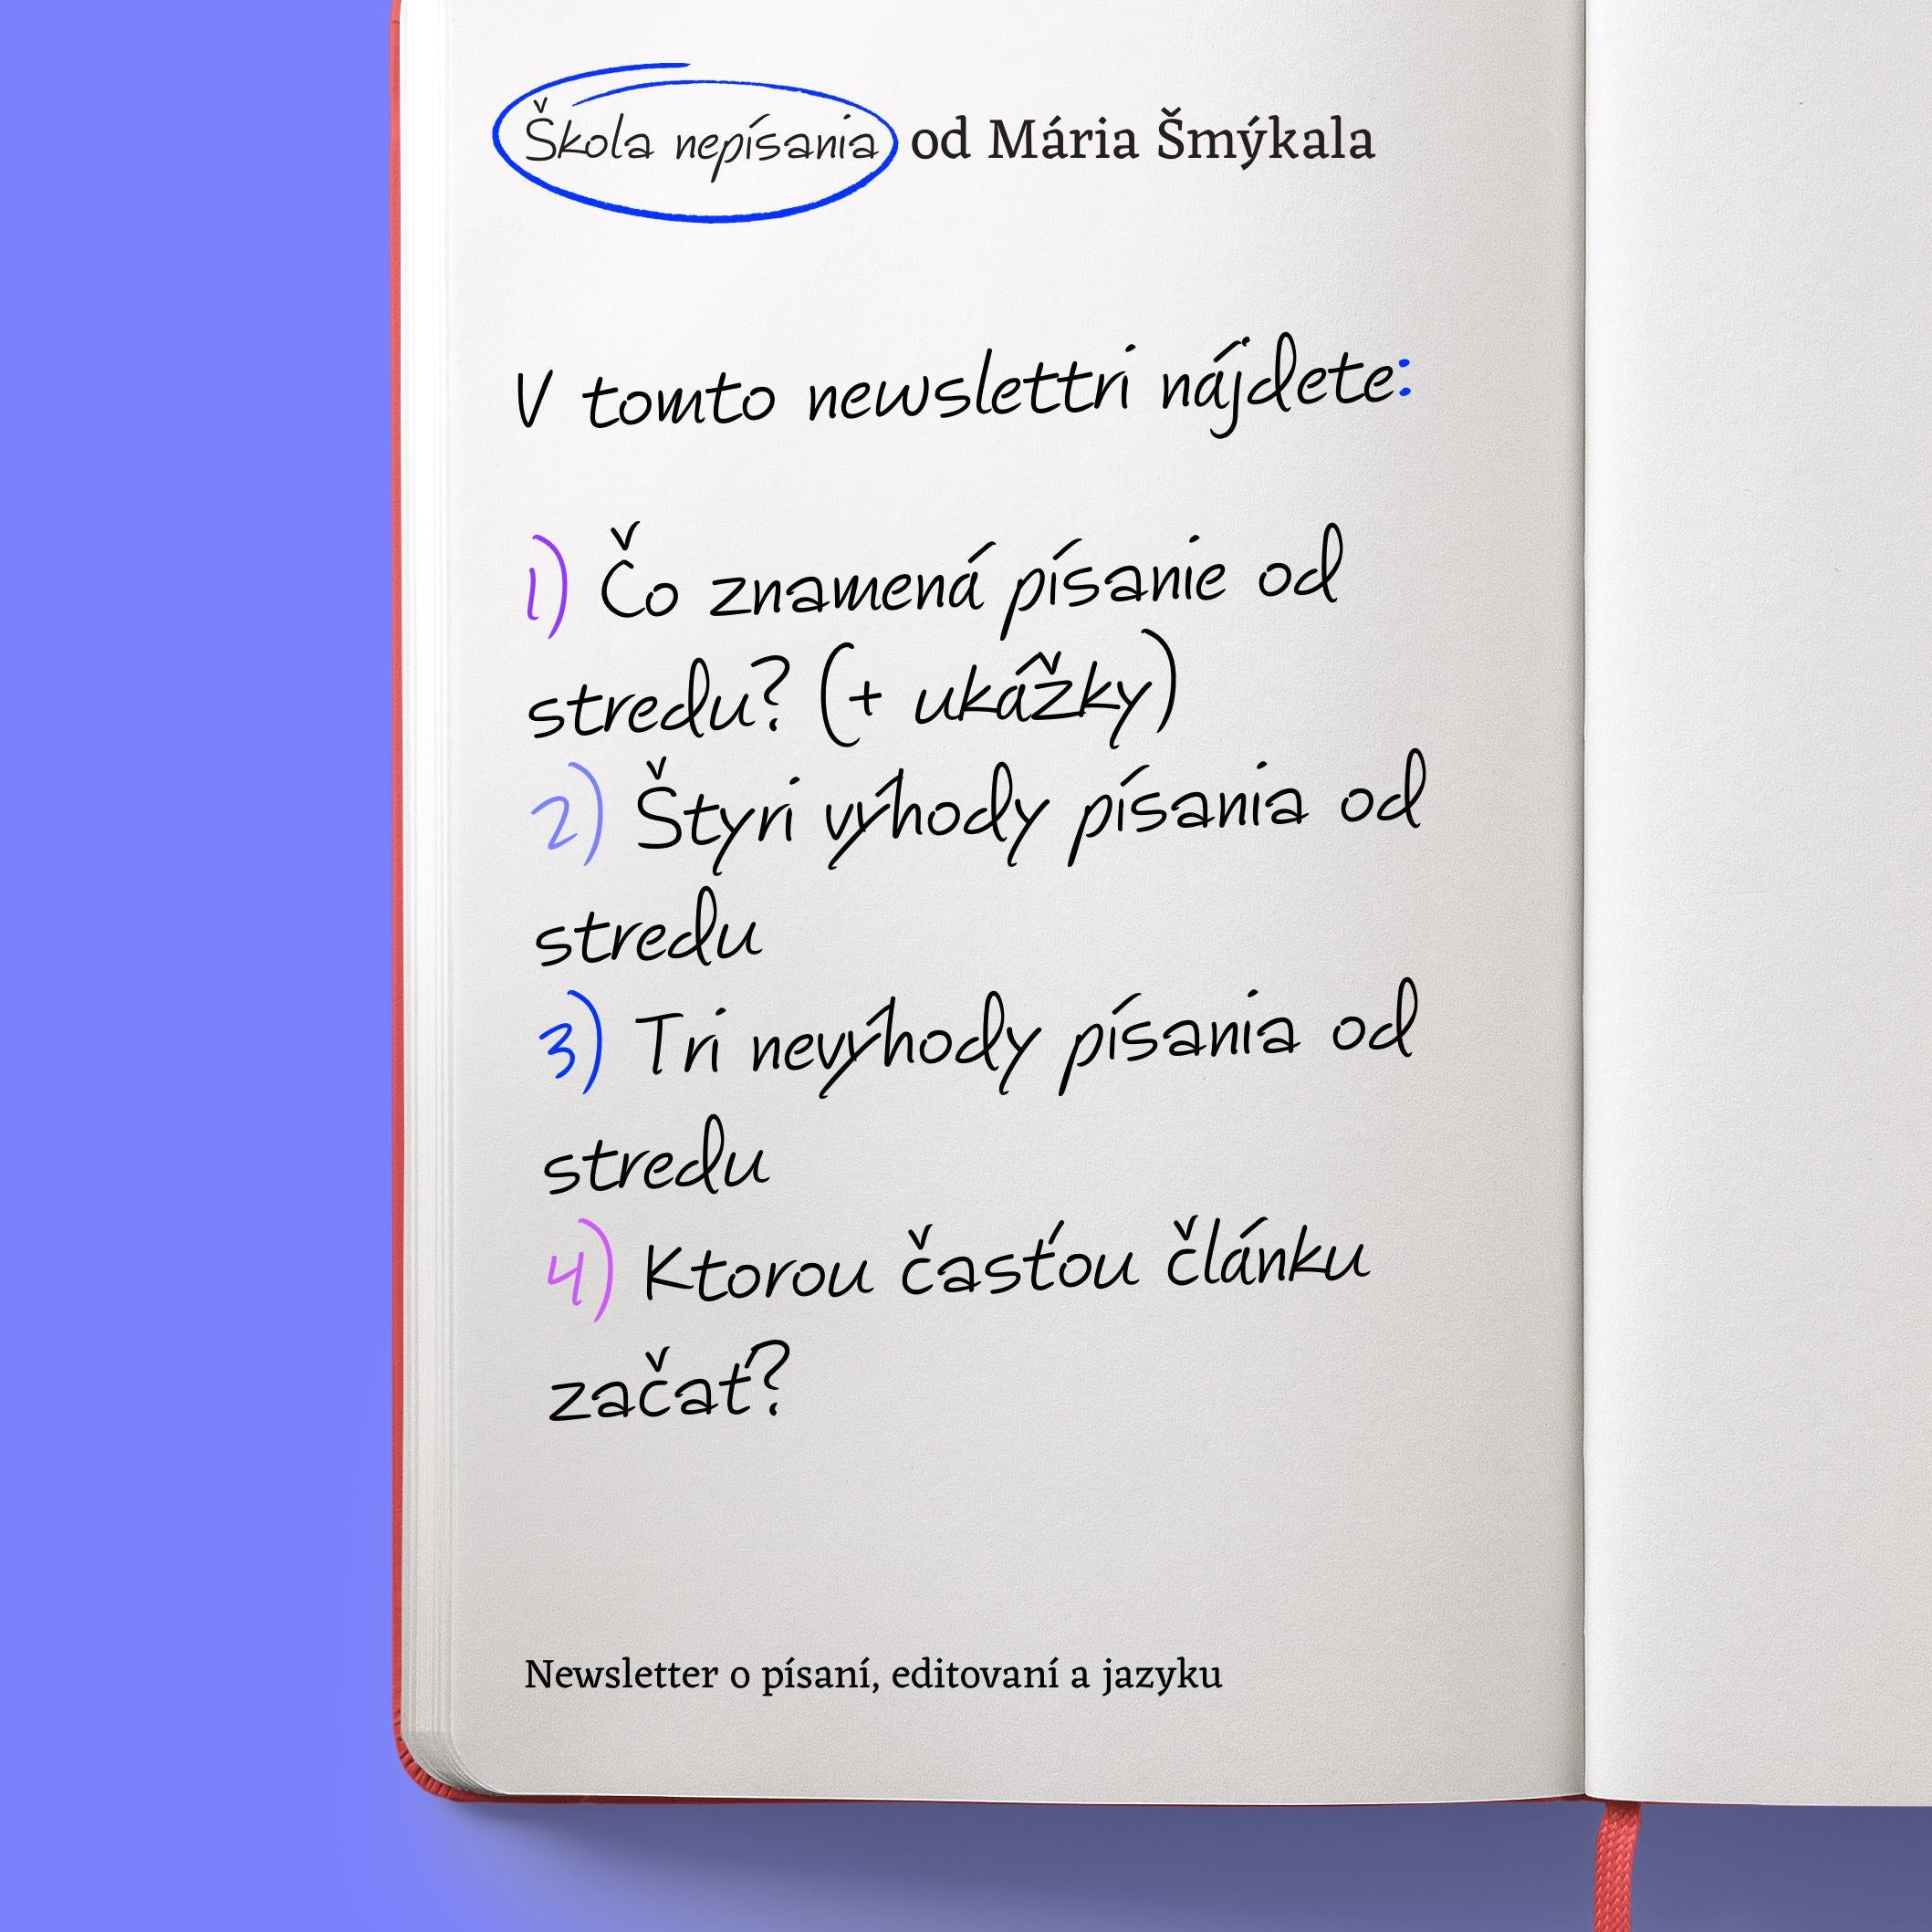 Škola nepísania od Mária Šmýkala
V tomto newslettri nájdete:
1) Čo znamená písanie od
stredu? (+ ukážky)
2) Štyri výhody písania od
stredu
3) Tri nevýhody písania od
stredu
4) Ktorou časťou článku
začať?
Newsletter o písaní, editovaní a jazyku